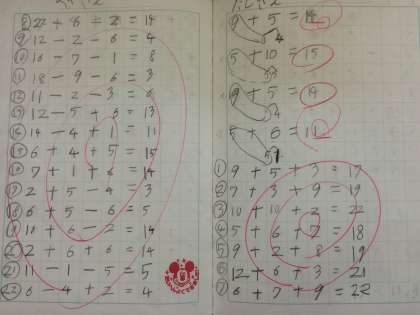 ⑨ 12 - 2 - 6 = 4
⑩ 16 - 7 - 1 = 8
⑪ 18 - 9 - 6 = 3
⑫ 11 - 2 - 3 = 6
⑬ 12 - 5 + 6 = 13
⑭ 14 - 4 + 1 = 11
⑮ 6 + 4 + 5 = 15
⑯ 7 + 1 + 6 = 14
⑰ 2 + 5 - 4 = 3
⑱ 6 + 5 - 6 = 5
⑲ 10 + 6 - 2 = 14
⑳ 2 + 6 + 6 = 14
㉑ 11 - 1 - 5 = 5
㉒ 6 - 4 + 2 = 4
9 + 5 = 14
5 + 10 = 15
9 + 5 = 14
4
5 + 6 = 11
① 9 + 5 + 3 = 17
② 7 + 3 + 9 = 19
③ 10 + 10 + 2 = 22
④ 5 + 6 + 7 = 18
⑤ 9 + 2 + 8 = 19
⑥ 12 + 6 + 3 = 21
⑦ 6 + 7 + 9 = 22